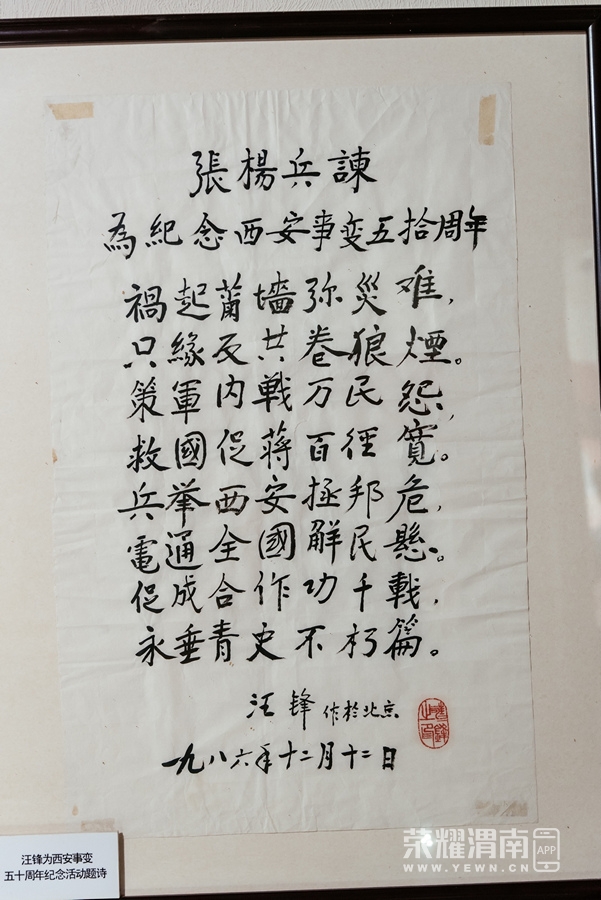 張楊兵諫
為紀念西安事变五拾周年
禍起蕭墻弥災难,
只緣反共卷狼煙。
策軍内戰万民怨,
救國促蔣百徑寬。
兵举西安拯邦危,
電通全國解民懸。
促成合作功千載,
永垂青史不朽篇。
汪锋作於北京
一九八六年十二月十二日
汪锋为西安事变
五十周年纪念活动题诗
荣耀渭南APP
WWW.YEWN.CN